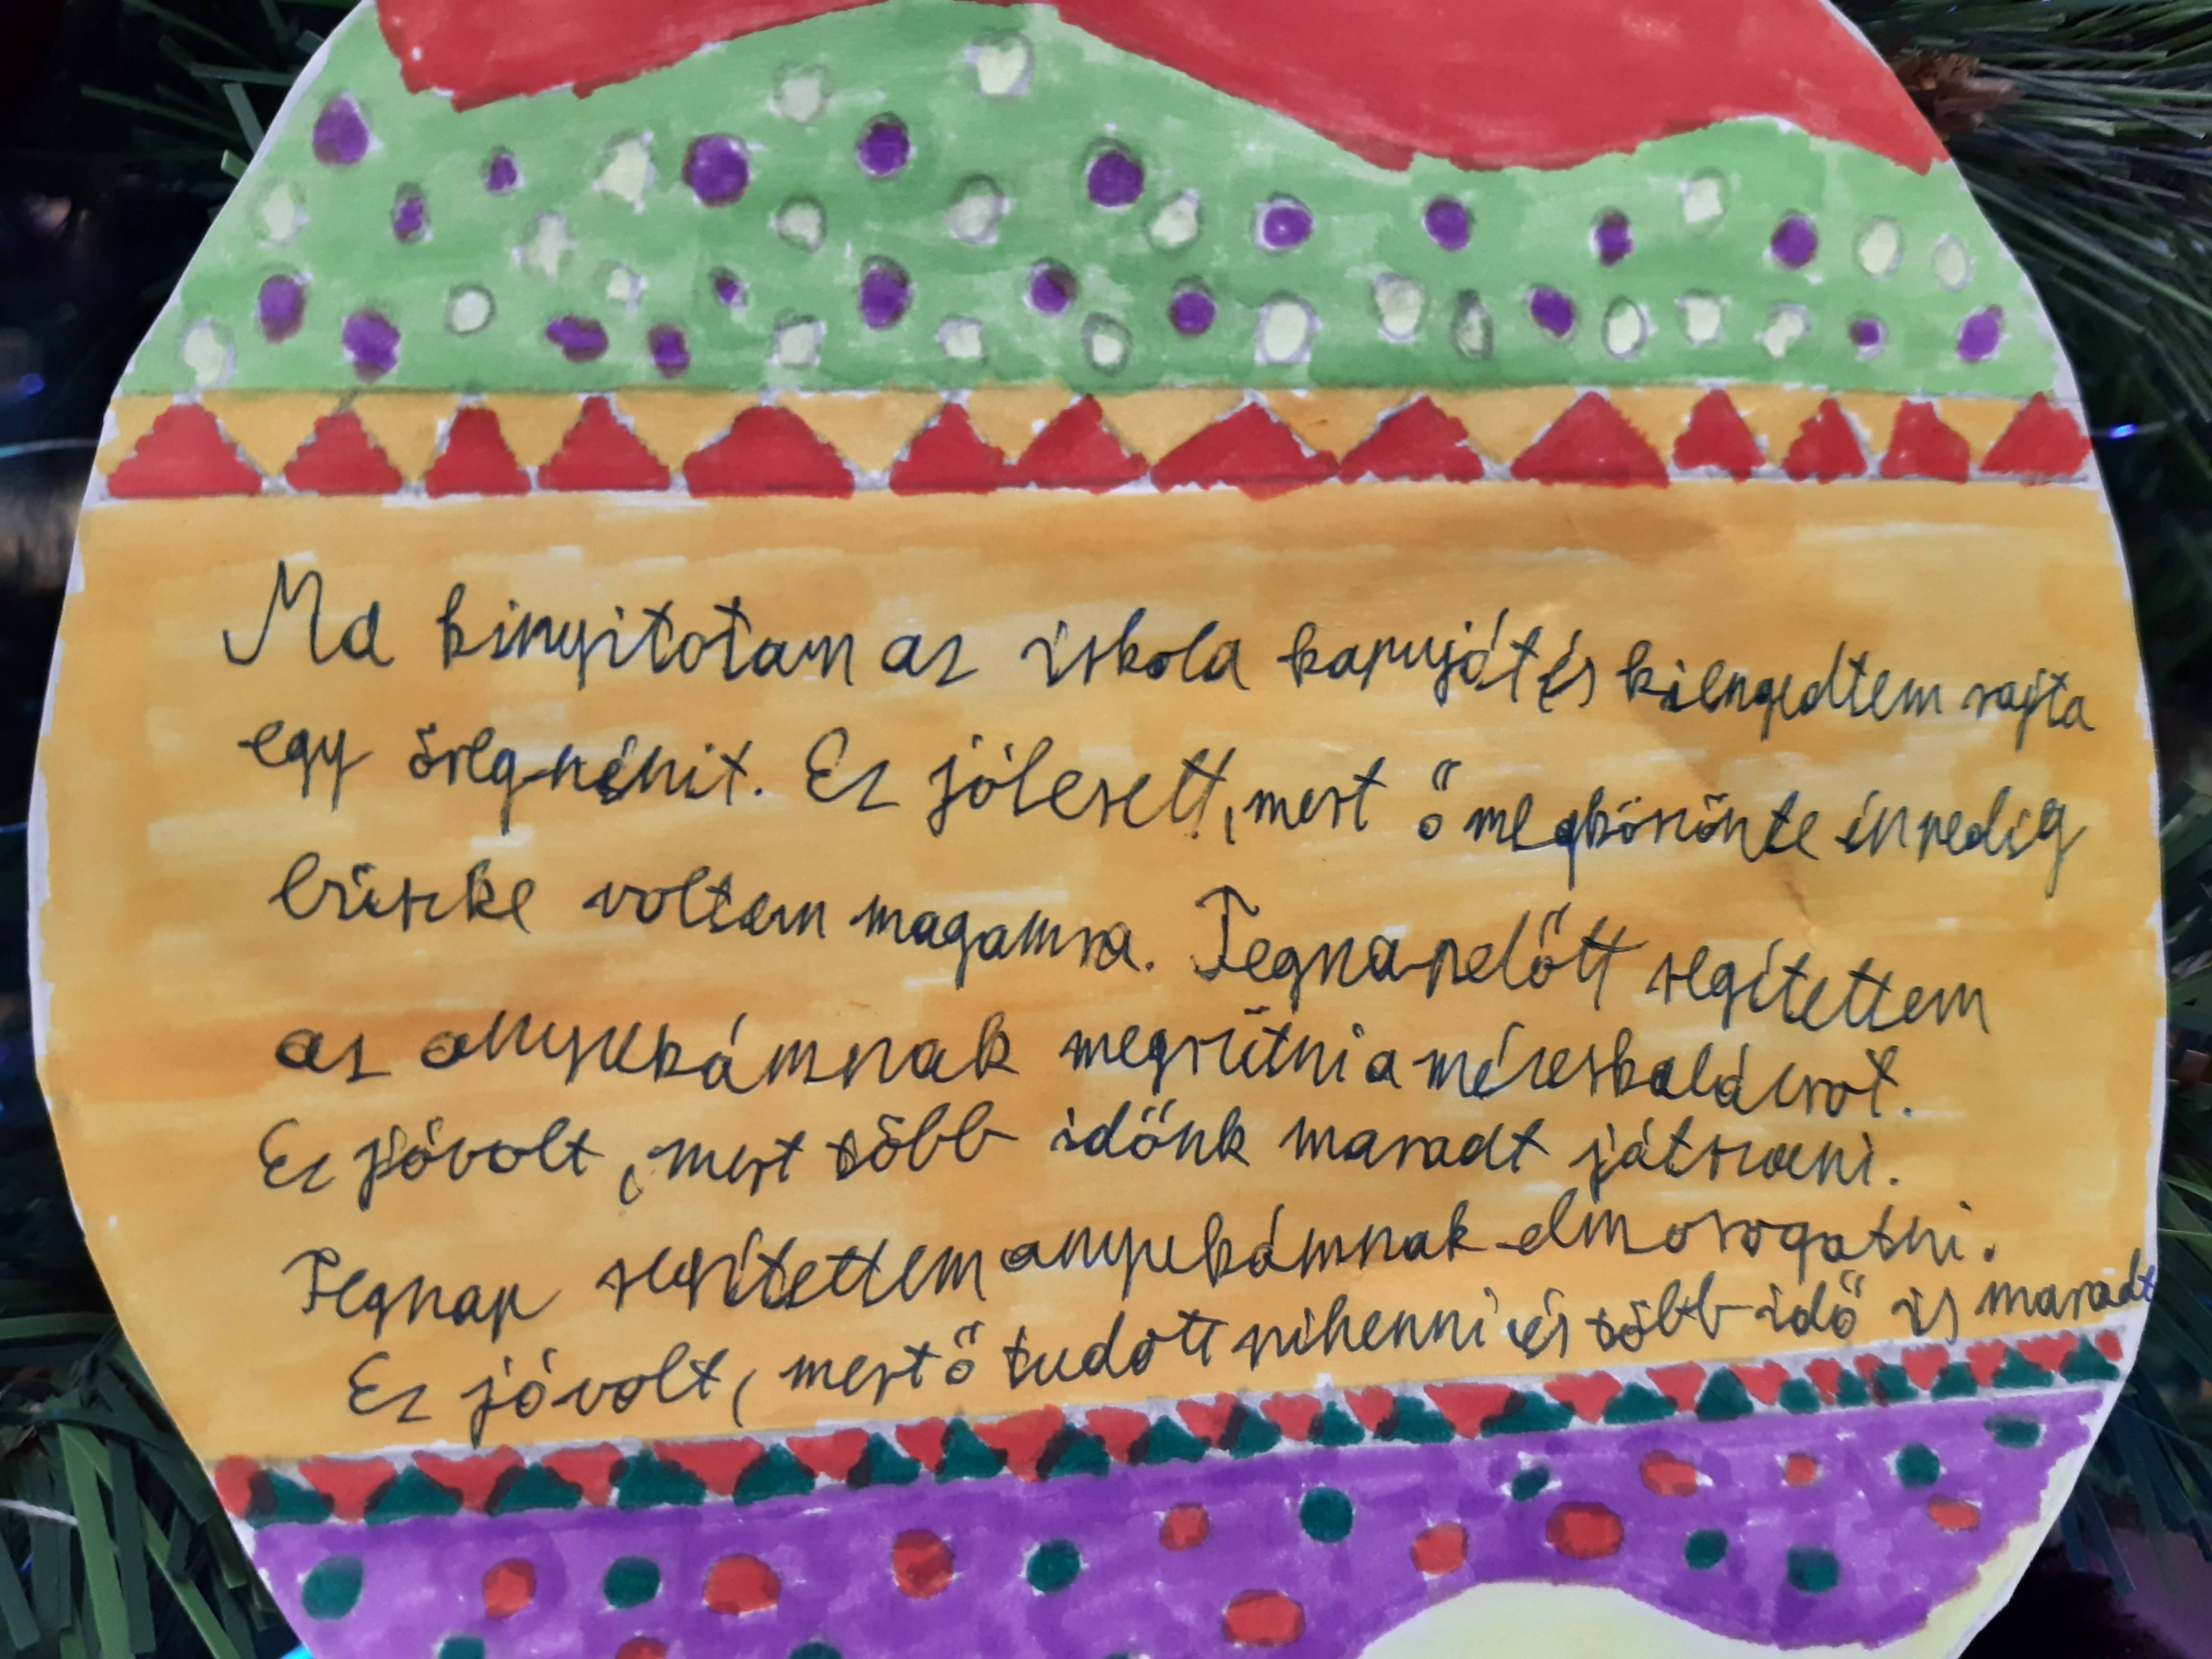 Ma kinyitotam az iskola kapuját és kiengedtem rajta
egy öreg nénit. Ez jólesett, mert ő megköszönte én pedig
büszke voltam magamra. Tegnapelőtt segítettem
az anyukámnak megsütni a mézeskalácsot.
Ez jóvolt, mert több időnk maradt játszani.
Tegnap segítettem anyukámnak elmosogatni.
Ez jóvolt, mert ő tudott pihenni és több idő is maradt